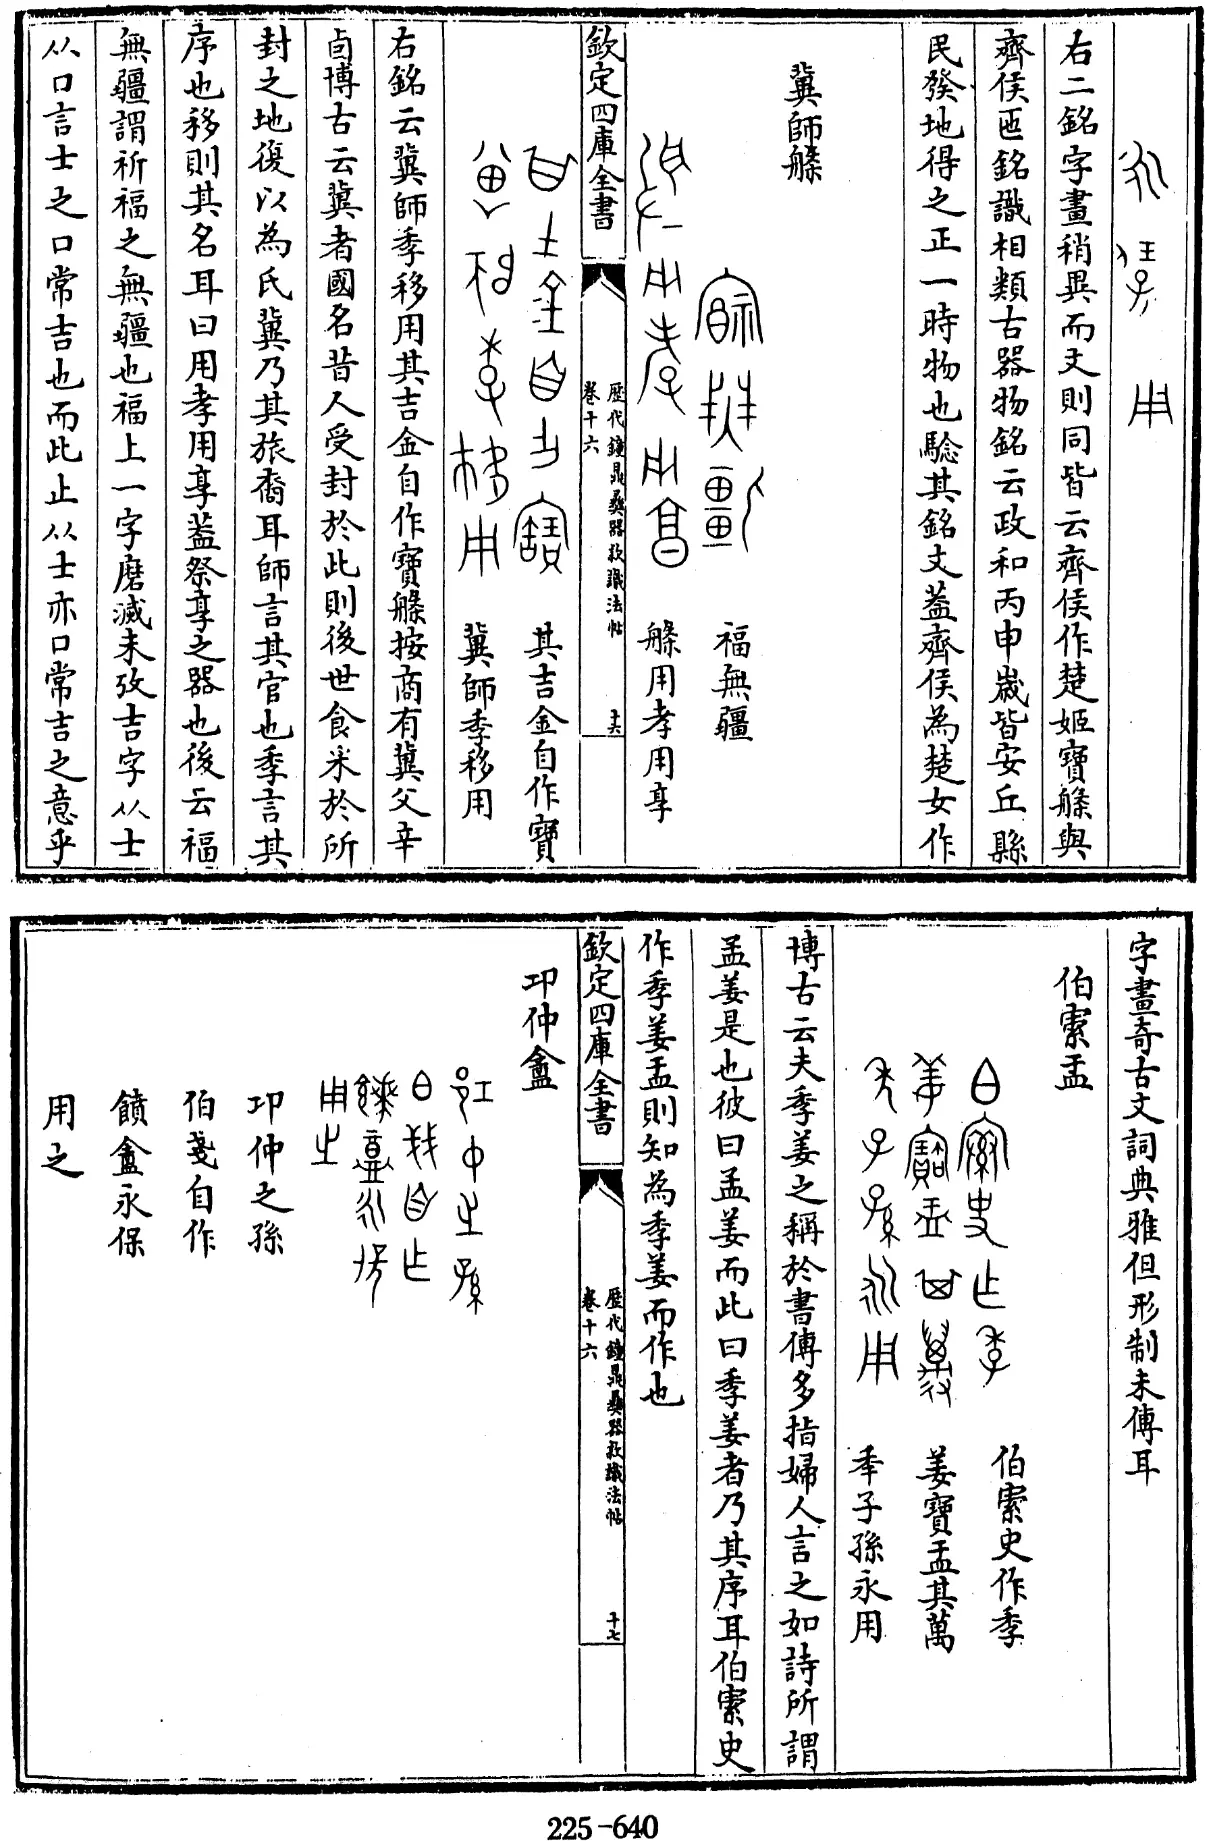 右二銘字畫稍異而文則同皆云齊侯作楚姬寶槃與
齊侯匜銘識相類古器物銘云政和丙申歲皆安丘縣
民發地得之正一時物也驗其銘文葢齊侯為楚女作
冀師槃
福無疆
槃用孝用享
欽定四庫全書
歷代鐘鼎彝器款識法帖
卷十六
十六
其吉金自作寶
冀師季移用
右銘云冀師季移用其吉金自作寶槃按商有冀父辛
卣博古云冀者國名昔人受封於此則後世食采於所
封之地復以為氏冀乃其旅裔耳師言其官也季言其
序也移則其名耳曰用孝用享葢祭享之器也後云福
無疆謂祈福之無疆也福上一字磨滅未攷吉字从士
从口言士之口常吉也而此止从士亦口常吉之意乎
字畫奇古文詞典雅但形制未傳耳
伯索盂
伯索史作季
姜寶盂其萬
年子孫永用
博古云夫季姜之稱於書傳多指婦人言之如詩所謂
孟姜是也彼曰孟姜而此曰季姜者乃其序耳伯索史
作季姜盂則知為季姜而作也
欽定四庫全書
歷代鐘鼎彝器款識法帖
卷十六
十七
卭仲盦
卭仲之孫
伯戔自作
饙盦永保
用之
225-640